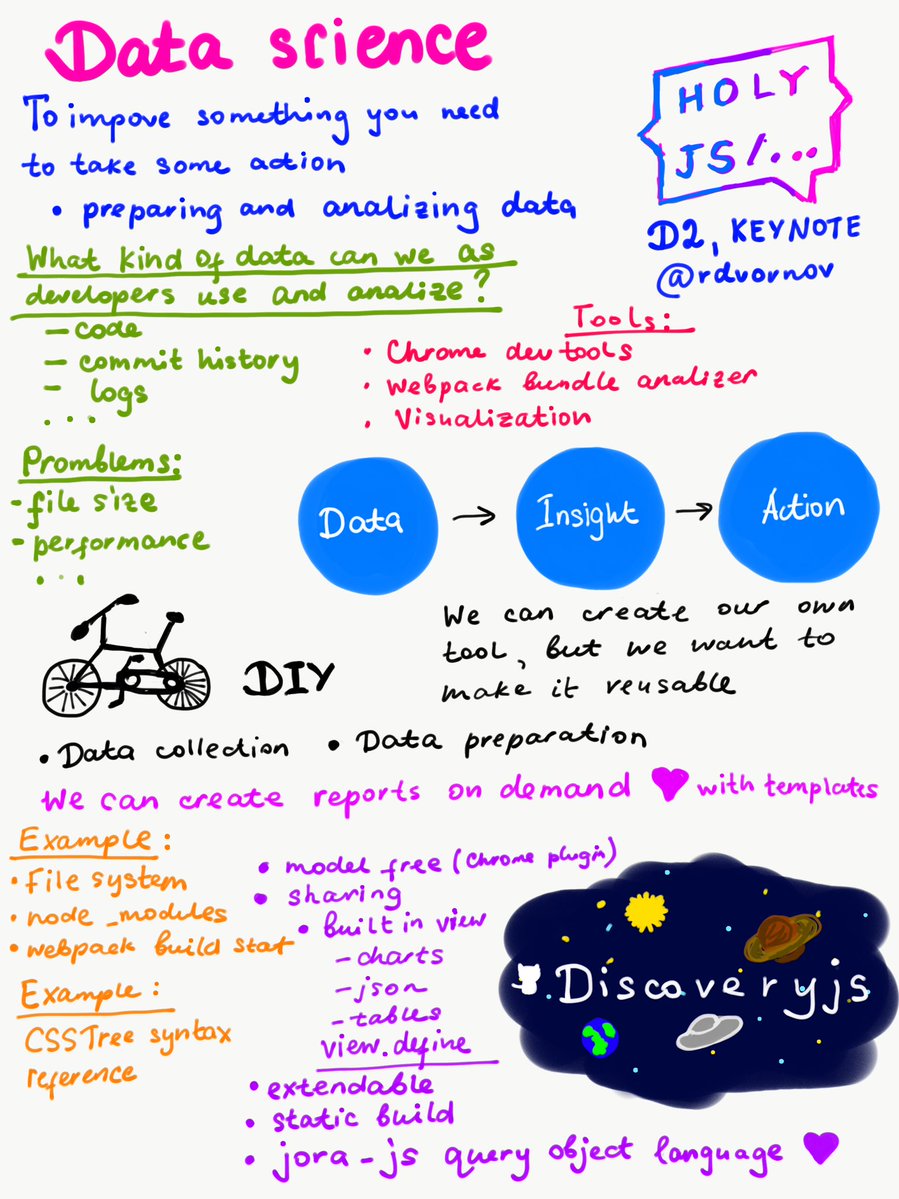 Data science
HOLY
JS/...
D2, KEYNOTE
@rdvornov
To impove something you need
to take some action
• preparing and analizing data
What kind of data can we as
developers use and analize?
– code
– commit history
– logs
...
Tools:
• Chrome devtools
• Webpack bundle analizer
• Visualization
Promblems:
- file size
- performance
...
Data → Insight → Action
We can create our own
tool, but we want to
make it reusable
DIY
• Data collection • Data preparation
We can create reports on demand ♥ with templates
Example:
• File system
• node_modules
• webpack build stat
Example:
CSSTree syntax
reference
• model free (Chrome plugin)
• sharing
• built in view
- charts
- json
- tables
view.define
• extendable
• static build
• jora-js query object language ♥
Discoveryjs